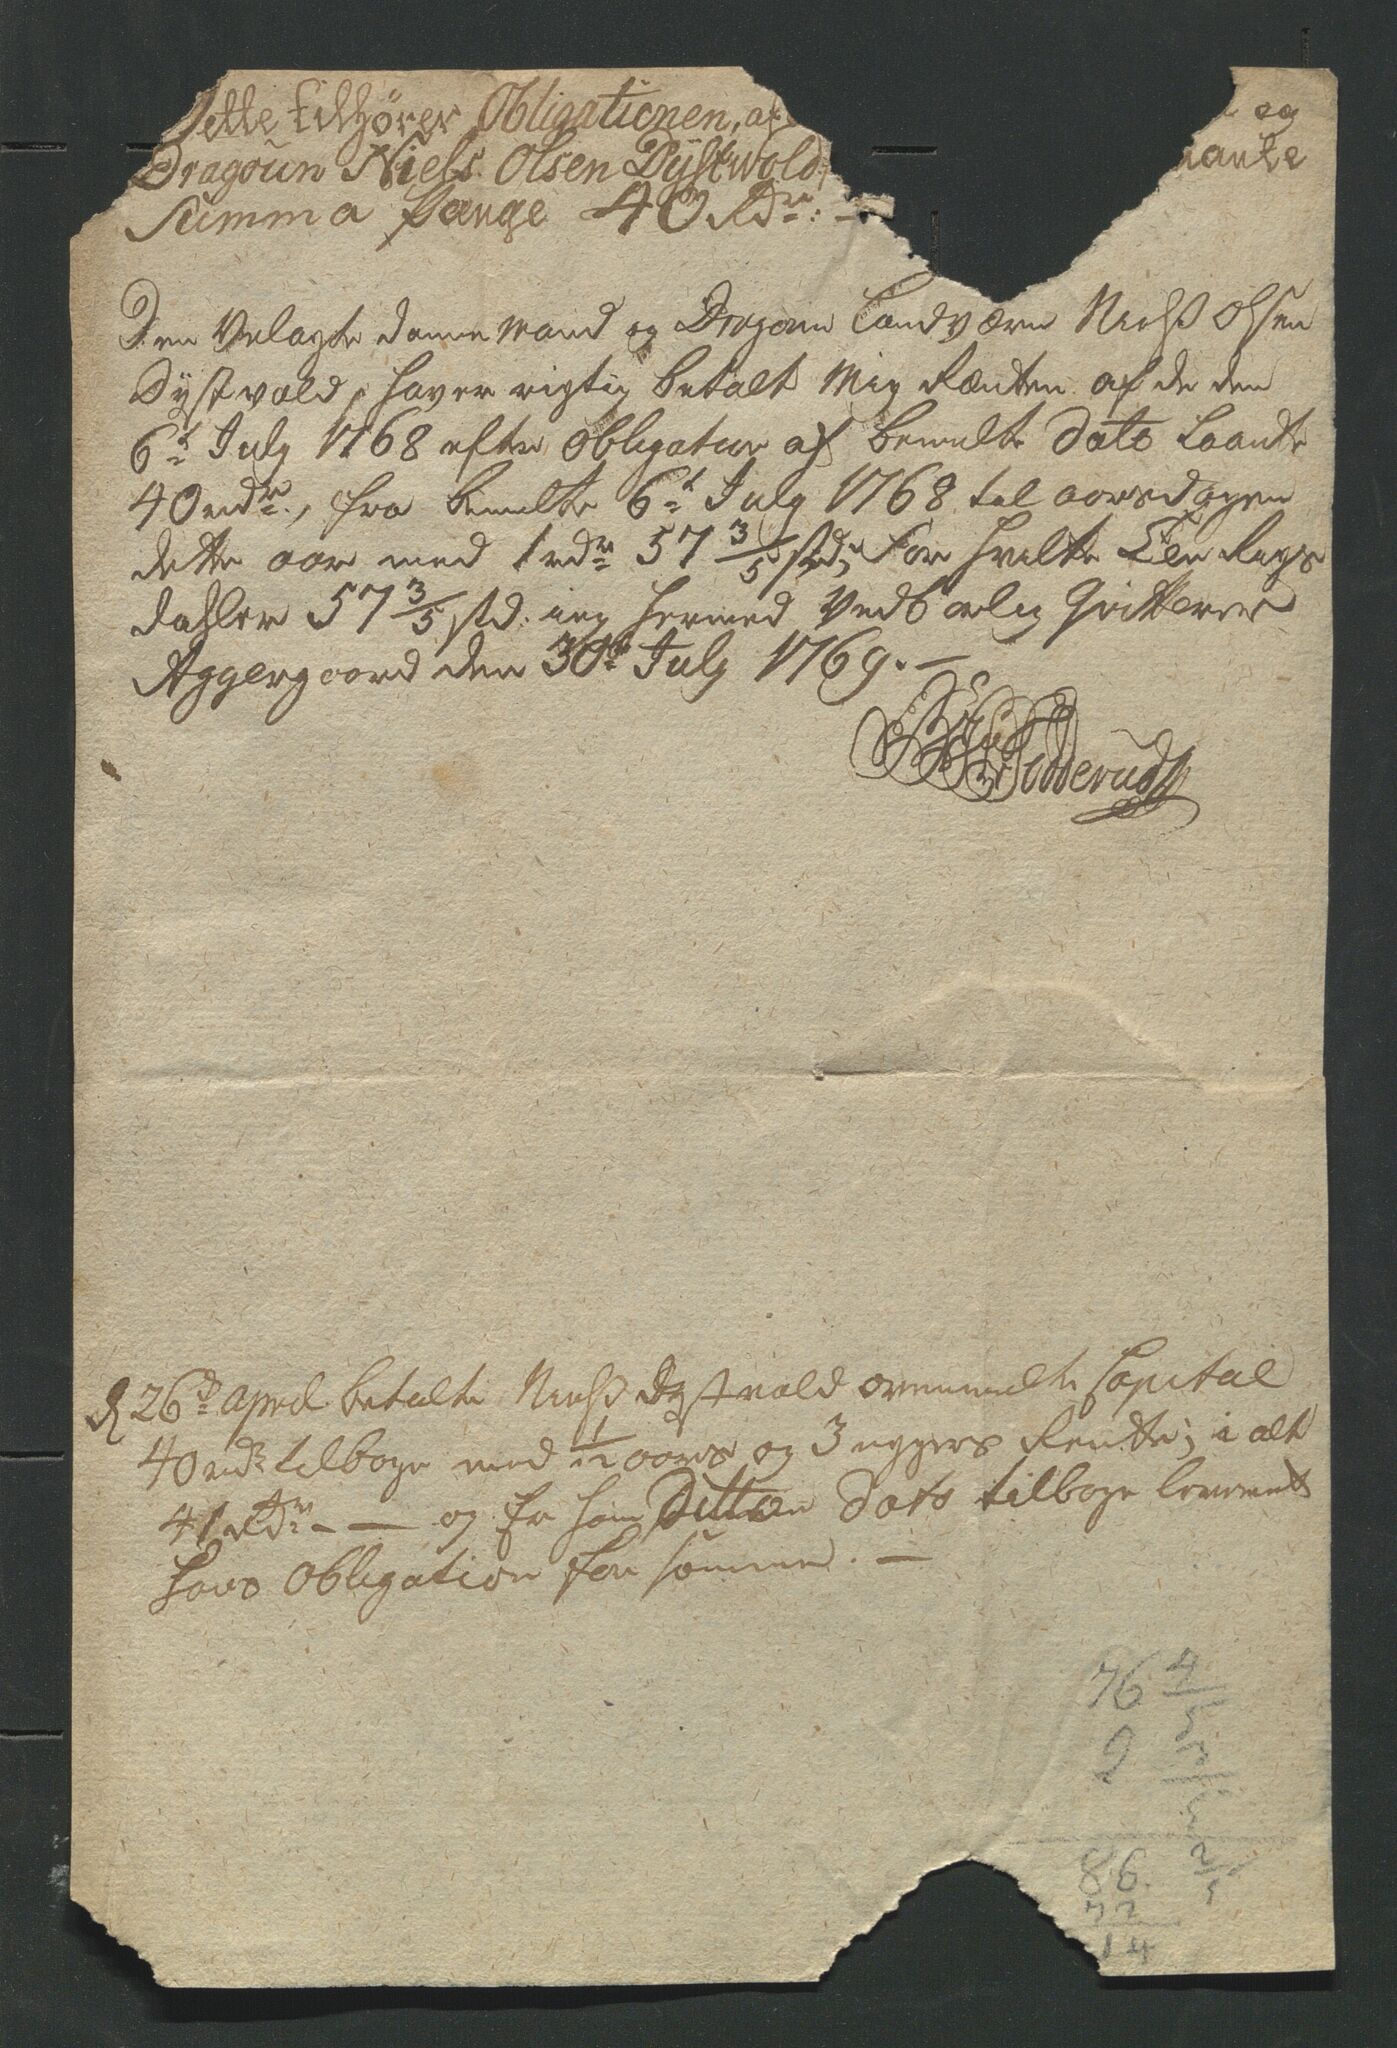 Dette tilhører Obligationen, af og
Dragoun Niels Olsen Dÿstwold, aante
summa Pænge 40 Rdr: –
Den Velagte danne Mand og Dragoun Landværn Niels Olsen
Dystvold, haver rigtig betalt Mig Rænten af de den
6t July 1768 efter obligation af bemelte Dato Laante
40 rdr., fra bemelte 6t July 1768 til aarsdagen
dette aar med 1 rdr 57 3/5 s, for hvilke Een Rigs
daler 57 3/5 s. ieg hermed Vedbørlig Qvitterer
Aggergaard den 30te July 1769. –
Bodderud
d 26d april betalte Niels Dystvold ovenmelte Capital
40 rdr tilbage med 1/2 aars og 3 ugers Rente; i alt
41 Rdr – – og er ham Ditto Dato tilbage leveret
hans Obligation for summen. –
76 4/5
9 3/5
86. 2/5
72
14